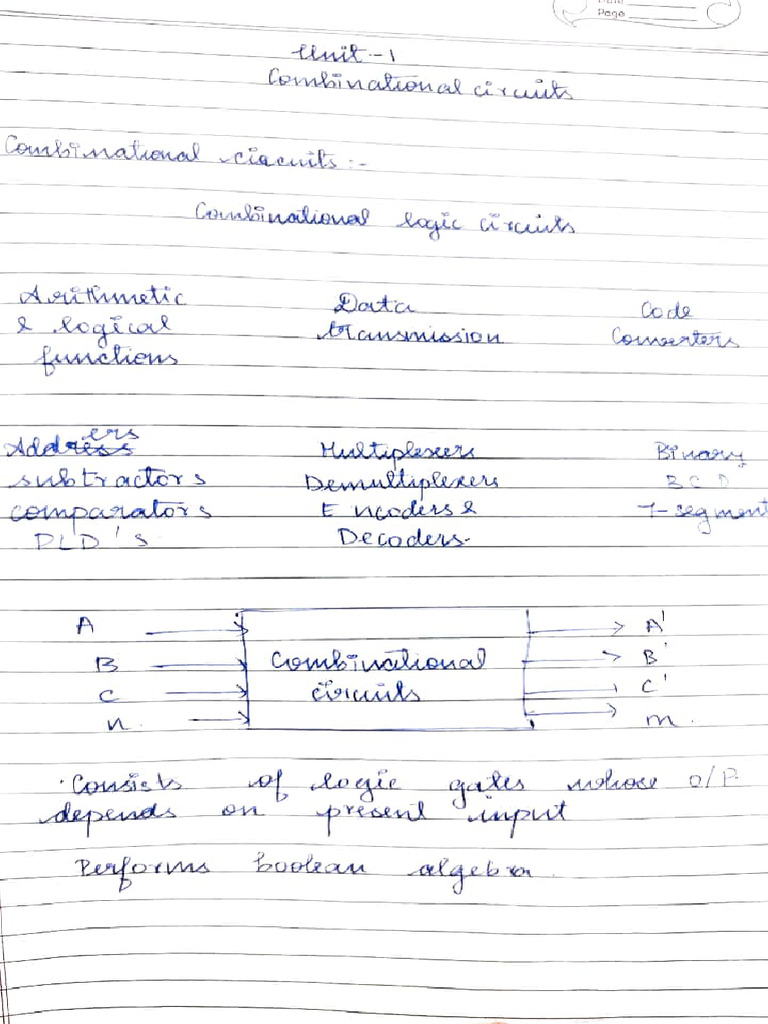 Page
Unit - 1
Combinational circuits
Combinational circuits :-
Combinational logic circuits
Arithmetic & logical functions
Data transmission
Code Converters
Adders
subtractors
comparators
PLD's
Multiplexers
Demultiplexers
Encoders &
Decoders.
Binary,
BCD
7-segment
A
B
C
n.
Combinational
circuits
A'
B'
C'
m.
· Consists of logic gates whose O/P
depends on present input
Performs boolean algebra.